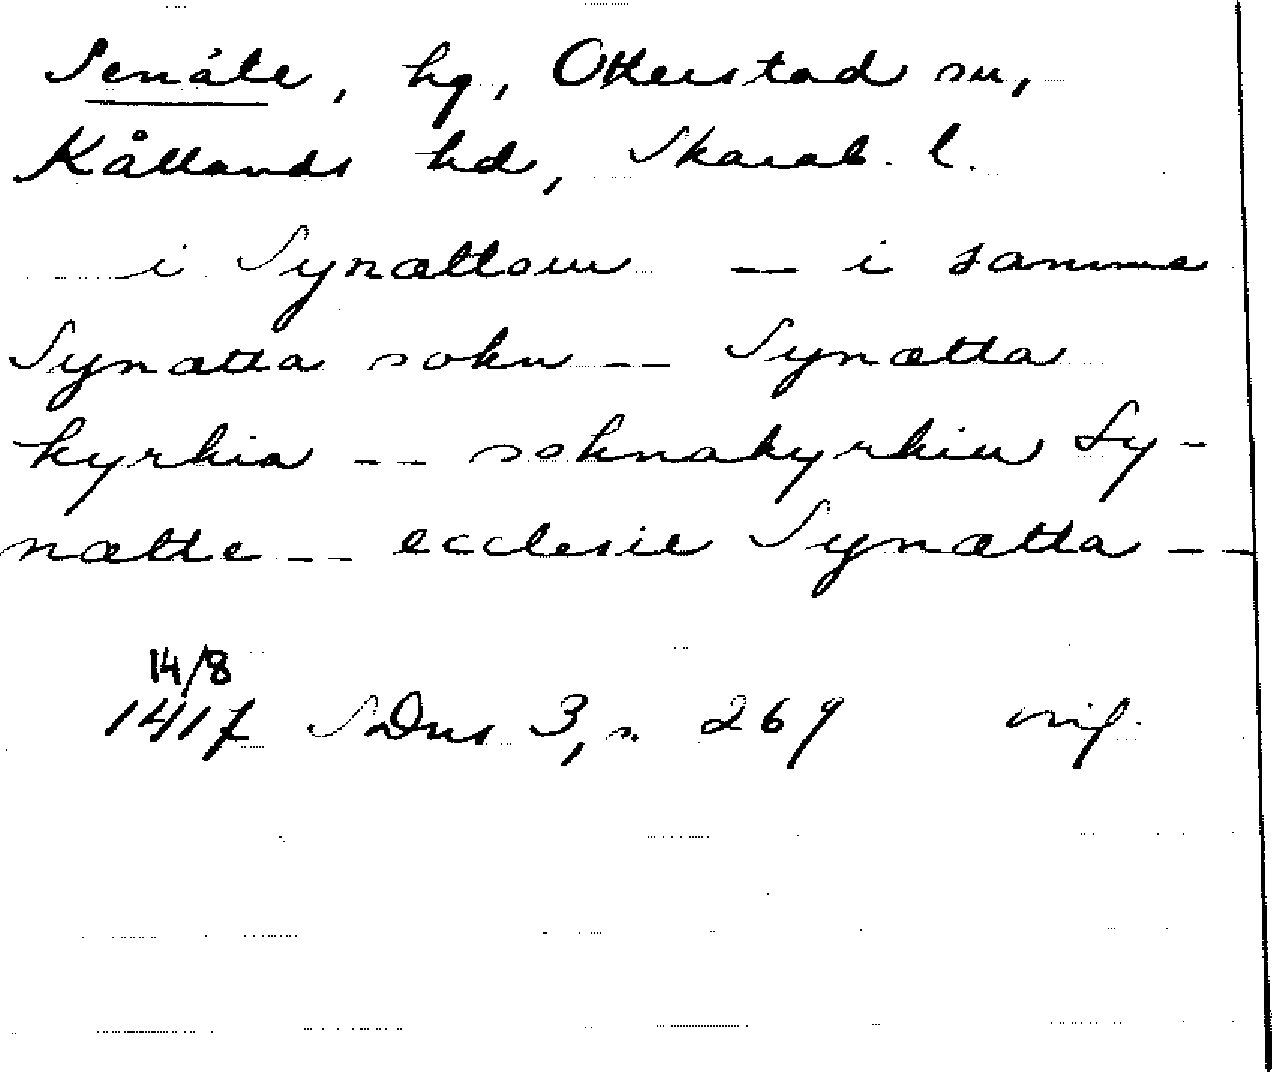 Senäte, hg, Otterstad sn,
Kållands hd, Skarab. l.
i Synættom — i samme
Synætta sokn -- Synætta
kyrkia -- soknakyrkiu Sy-
nætte -- ecclesie Synætta --
14/8
1417 SDns 3, s. 269